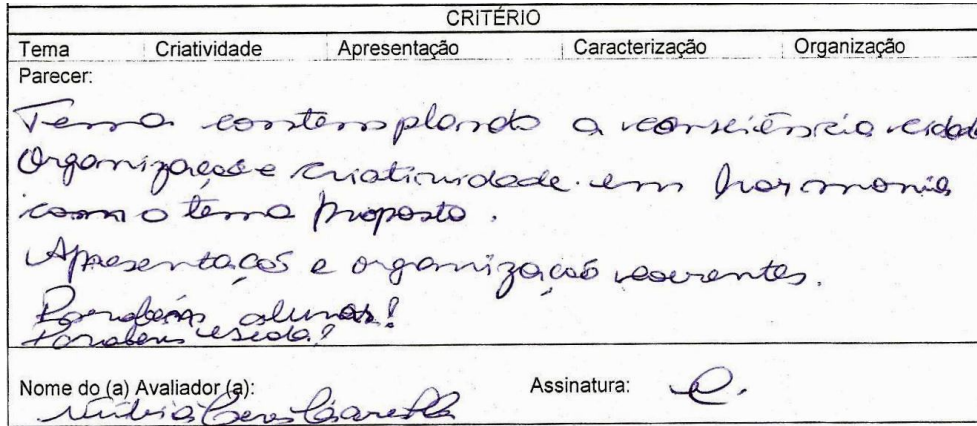 CRITÉRIO
Tema Criatividade Apresentação Caracterização Organização
Parecer:
Tema contemplando a consciência cidad
Organização e criatividade em harmonia
com o tema proposto.
Apresentação e organização coerentes.
Parabéns alunos!
Parabéns escola!
Nome do (a) Avaliador (a): Assinatura: